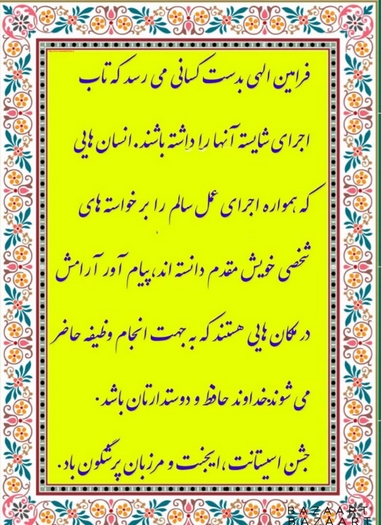 فرامین الهی بدست کسانی می رسد که تاب
اجرای شایسته آنها را داشته باشند. انسان هایی
که همواره اجرای عمل سالم را بر خواسته های
شخصی خویش مقدم دانسته اند، پیام آور آرامش
در مکان هایی هستند که به جهت انجام وظیفه حاضر
می شوند. خداوند حافظ و دوستدارتان باشد.
جشن اسیستانت، ایجنت و مرزبان پرشگون باد.
BAZAART
BAZAART